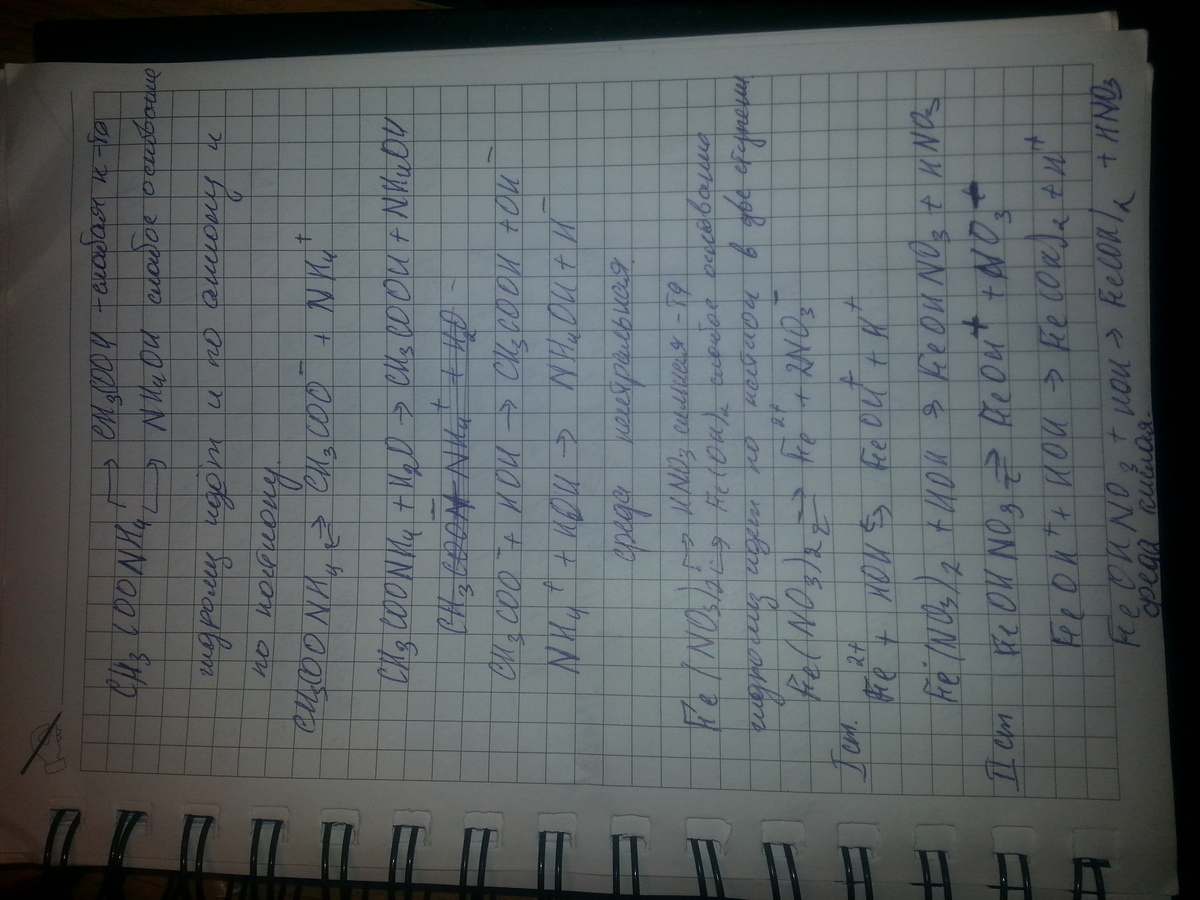 CH₃COONH₄ → CH₃COOH - слабая к-та
→ NH₄OH слабое основание
гидролиз идёт и по аниону и
по катиону.
CH₃COONH₄ ⇄ CH₃COO⁻ + NH₄⁺
CH₃COONH₄ + H₂O → CH₃COOH + NH₄OH
CH₃COO⁻ NH₄⁺ + H₂O
CH₃COO⁻ + HOH → CH₃COOH + OH⁻
NH₄⁺ + HOH → NH₄OH + H⁻
среда нейтральная.
Fe(NO₃)₂ → HNO₃ сильная -та
→ Fe(OH)₂ слабое основание
гидролиз идет по катион в две ступени
Fe(NO₃)₂ ⇄ Fe²⁺ + 2NO₃⁻
I ст.
Fe²⁺ + HOH ⇆ FeOH⁺ + H⁺
Fe(NO₃)₂ + HOH → FeOHNO₃ + HNO₃
II ст FeOHNO₃ ⇄ FeOH⁺ + NO₃⁺
FeOH⁺ + HOH → Fe(OH)₂ + H⁺
FeOHNO₃ + HOH → Fe(OH)₂ + HNO₃
среда кислая.